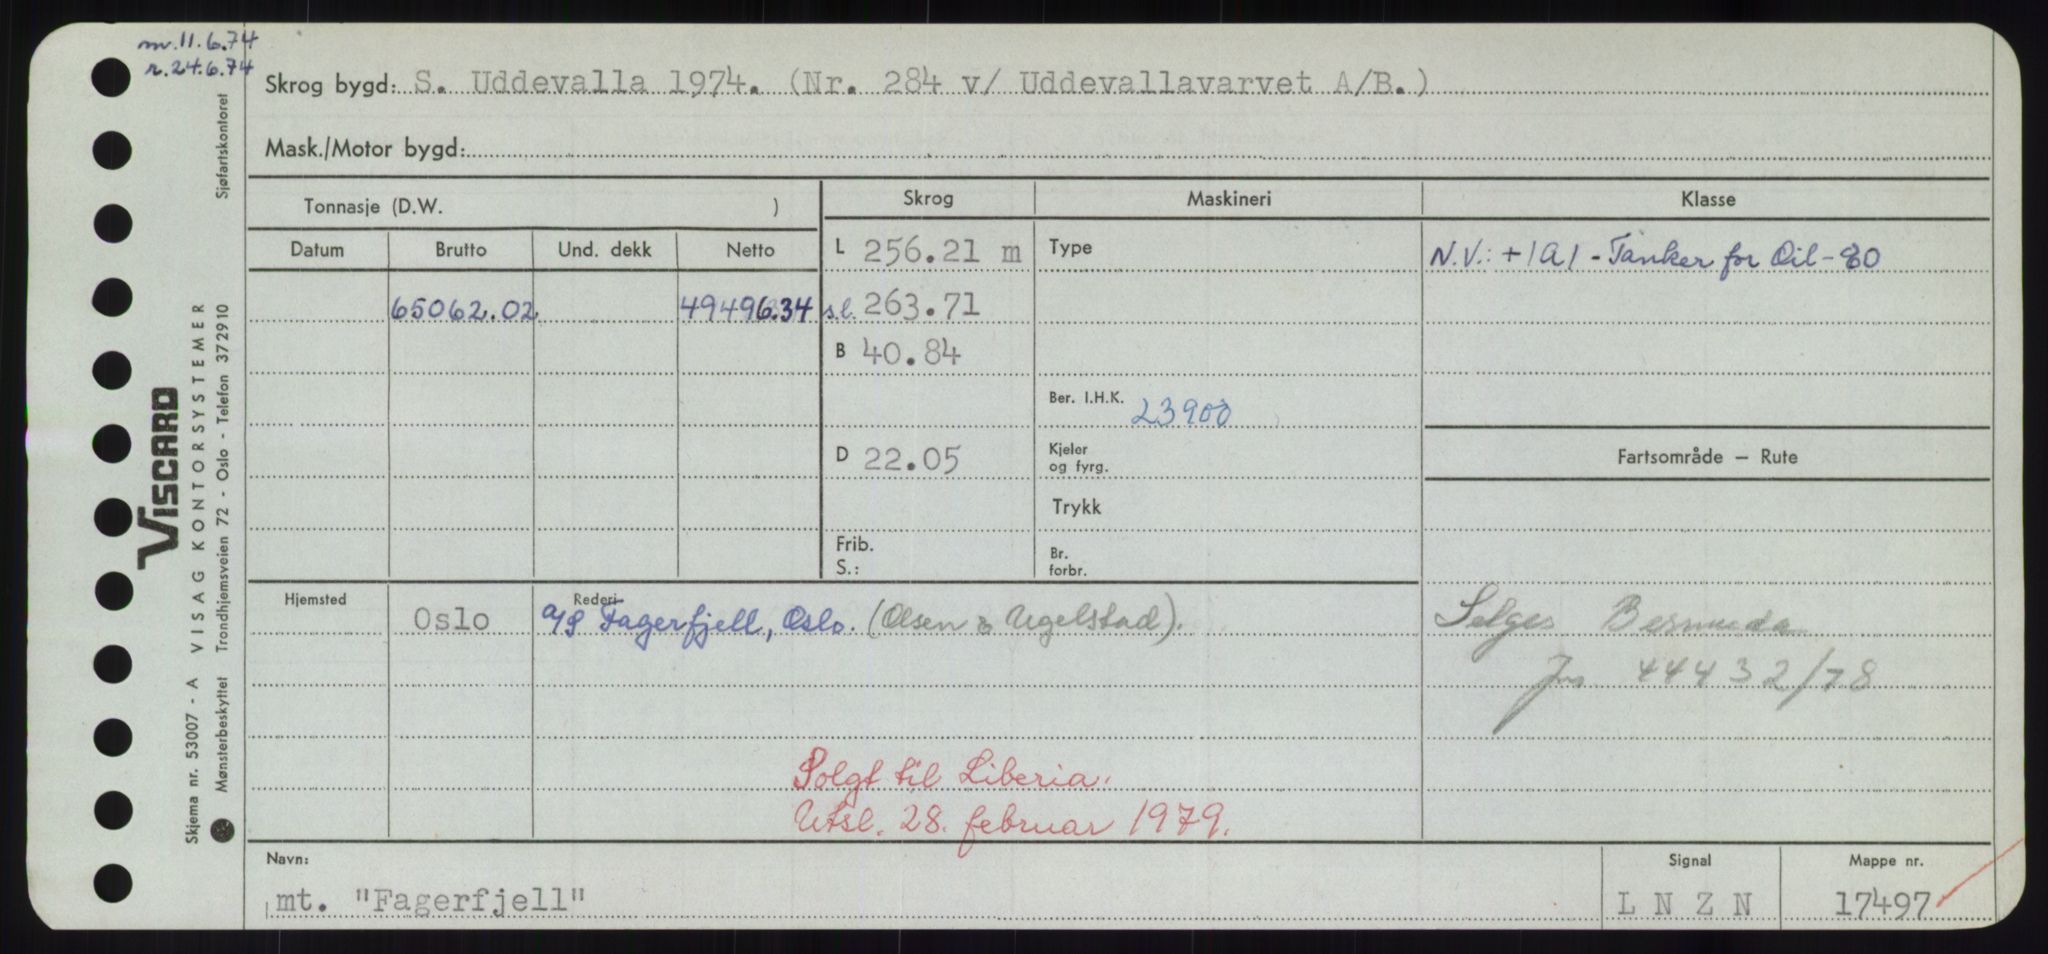 nv. 11.6.74
r. 24.6.74
Skrog bygd: S. Uddevalla 1974. (Nr. 284 v/ Uddevallavarvet A/B.)
Mask./Motor bygd:
Tonnasje (D.W. )
Skrog
Maskineri
Klasse
Datum Brutto Und. dekk Netto
L 256.21 m
Type
N.V.: +1A1 - Tanker for Oil - E0
65062.02 49496.34
s.l. 263.71
B 40.84
Ber. I.H.K. 23900
D 22.05
Kjeler
og fyrg.
Fartsområde — Rute
Trykk
Frib.
S.:
Br.
forbr.
Hjemsted Oslo
Rederi
A/S Fagerfjell, Oslo. (Olsen & Ugelstad).
Selges Bermuda
Jns 44432/78
Solgt til Liberia.
Utsl. 28. februar 1979.
Navn:
mt. "Fagerfjell"
Signal
L N Z N
Mappe nr.
17497
VISCARD
Skjema nr. 53007 - A VISAG KONTORSYSTEMER
Mønsterbeskyttet Trondhjemsveien 72 - Oslo - Telefon 372910 Sjøfartskontoret